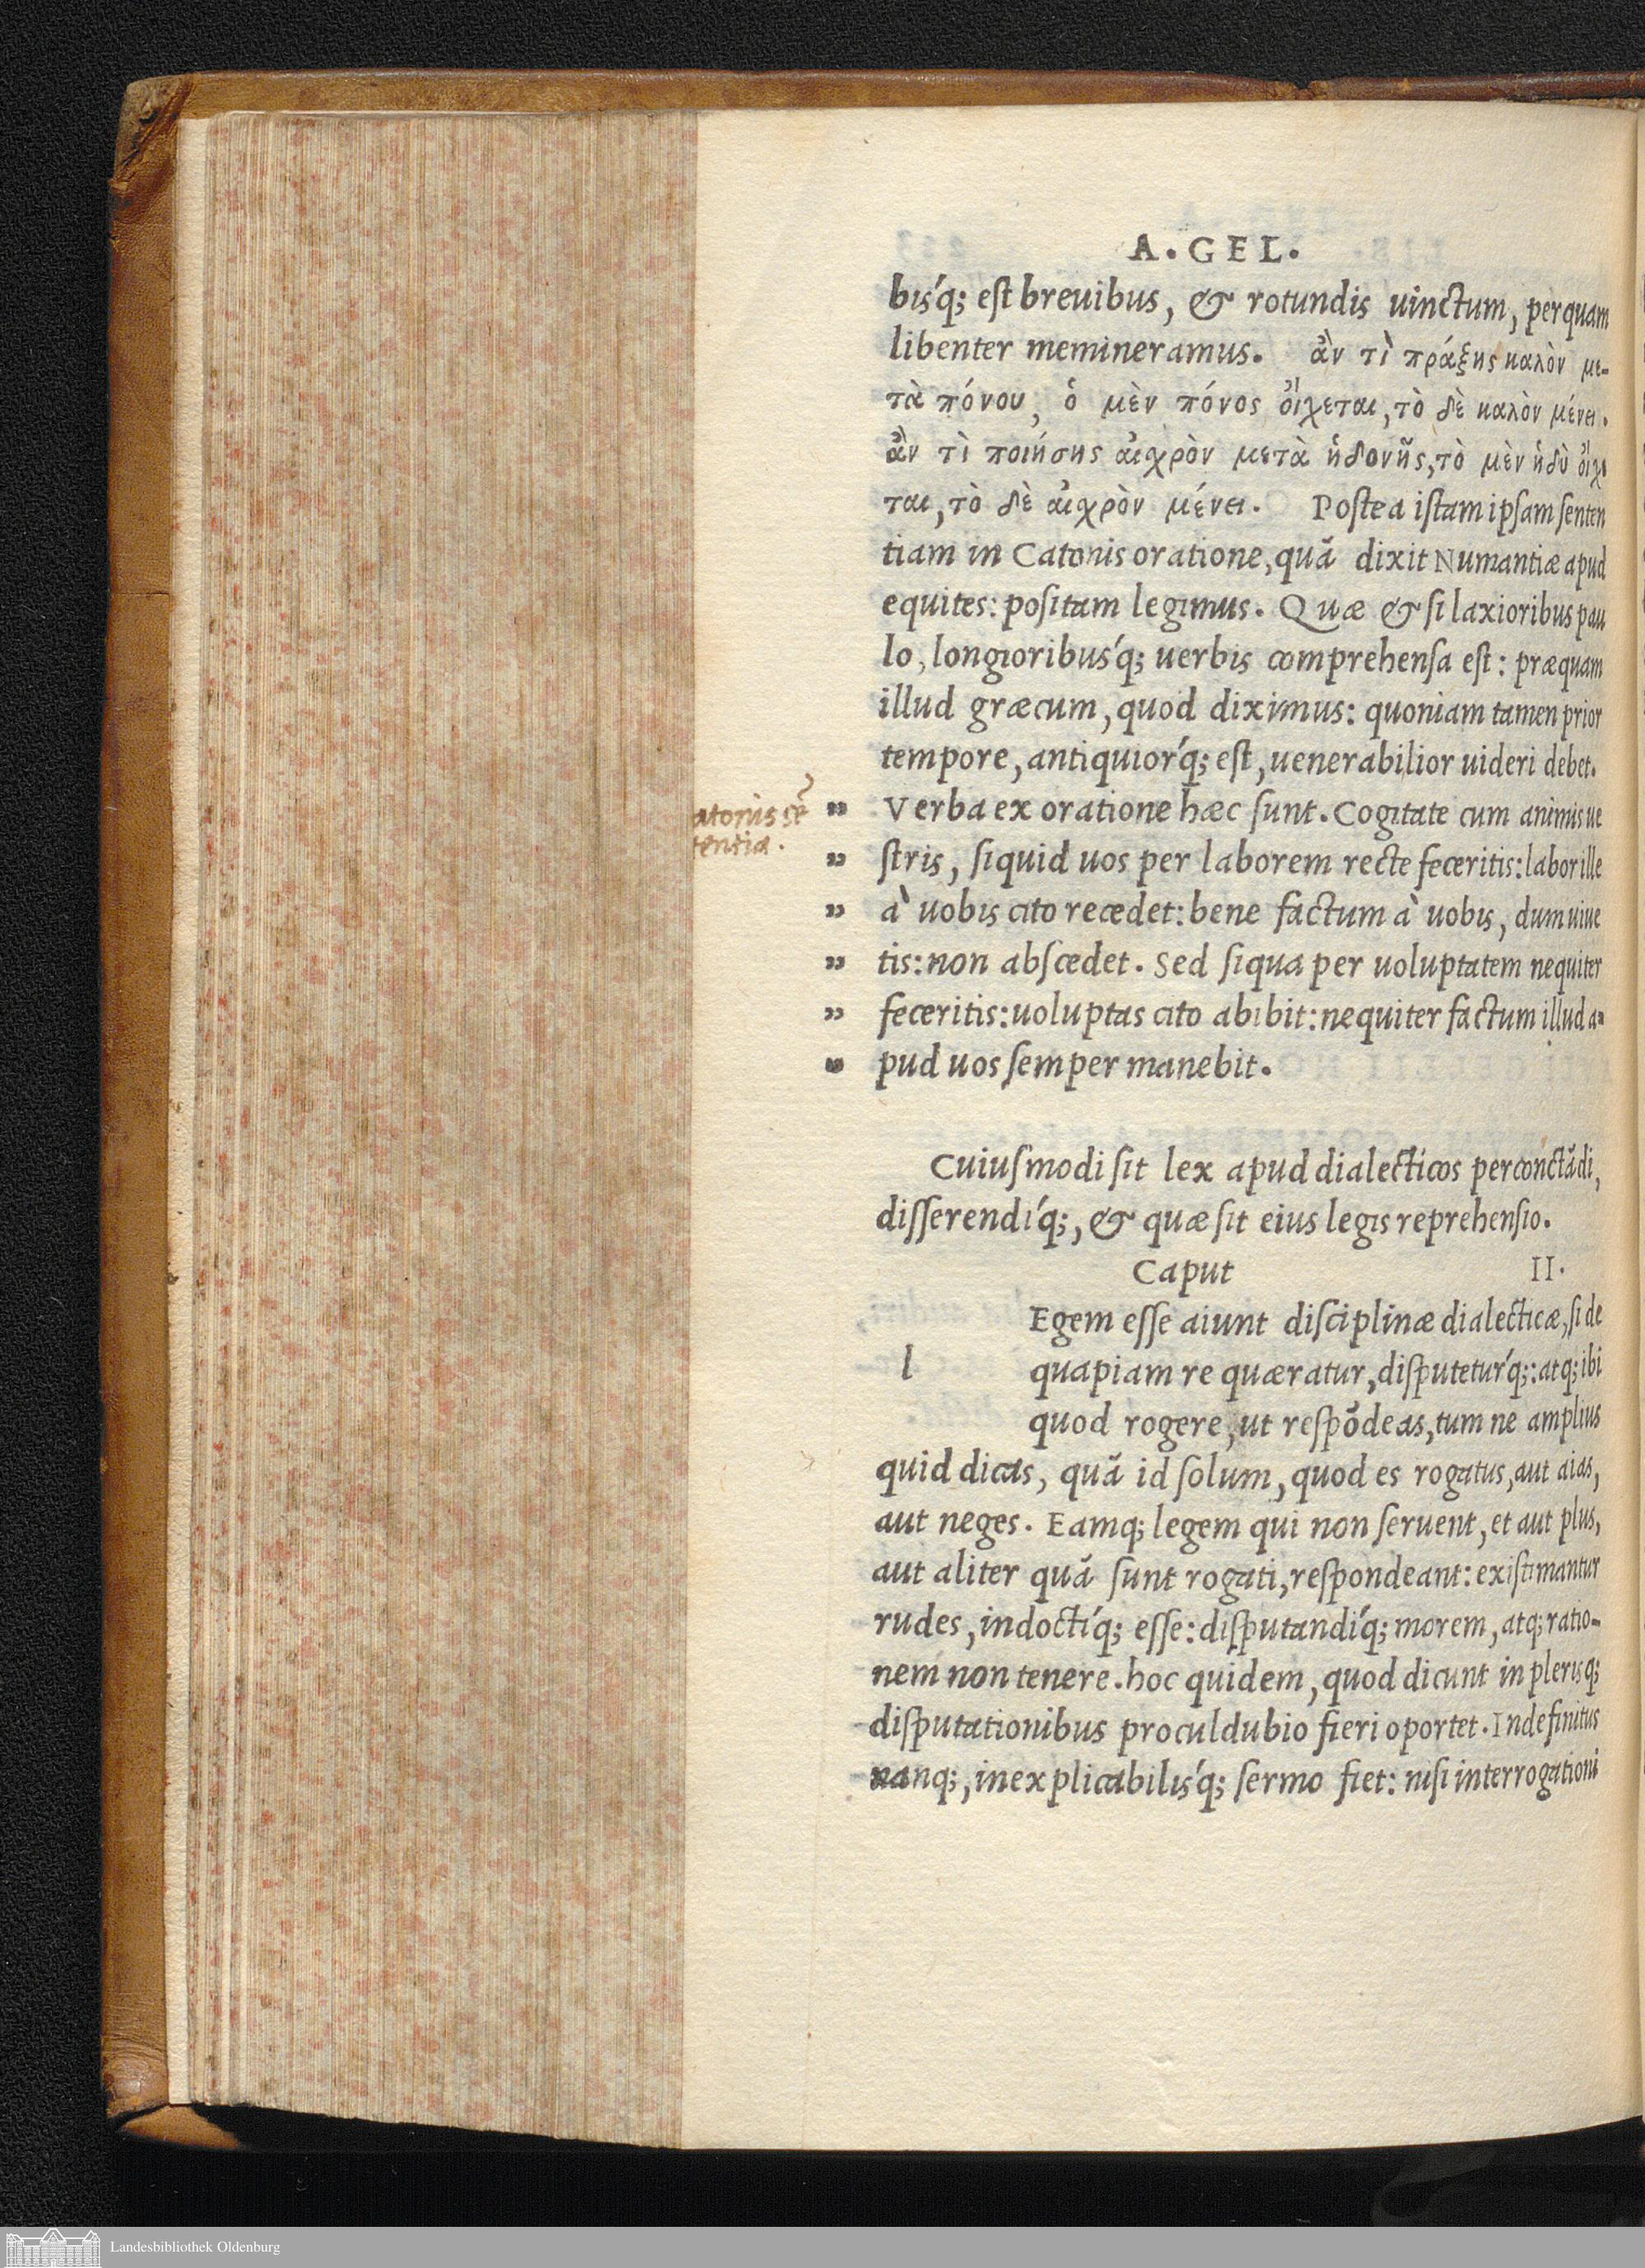 A. GEL.
bisq́; eſt breuibus, & rotundis uinctum, perquam
libenter memineramus. ἂν τὶ πράξης καλὸν με-
τὰ πόνου, ὁ μὲν πόνος ὄιχεται, τὸ δὲ καλὸν μένει.
ἂν τὶ ποιήσης αἰχρὸν μετὰ ἡδονῆς, τὸ μὲν ἡδὺ ὄιχε
ται, τὸ δὲ αἰχρὸν μένει. Poſtea iſtam ipſam ſenten
tiam in Catonis oratione, quã dixit Numantiæ apud
equites: poſitam legimus. Quæ & ſi laxioribus pau
lo, longioribusq́; uerbis comprehenſa eſt: præquam
illud græcum, quod diximus: quoniam tamen prior
tempore, antiquiorq́; eſt, uenerabilior uideri debet.
atonis sẽ
tentia.
” Verba ex oratione hæc ſunt. Cogitate cum animis ue
” ſtris, ſiquid uos per laborem recte feceritis: labor ille
” à uobis cito recedet: bene factum à uobis, dum uiue
” tis: non abſcedet. Sed ſiqua per uoluptatem nequiter
” feceritis: uoluptas cito abibit: nequiter factum illud a-
” pud uos ſemper manebit.
Cuiuſmodi ſit lex apud dialecticos perconctãdi,
diſſerendiq́;, & quæ ſit eius legis reprehenſio.
Caput II.
Egem eſſe aiunt diſciplinæ dialecticæ, ſi de
l quapiam re quæratur, diſputeturq́;: atq; ibi
quod rogere, ut reſpõdeas, tum ne amplius
quid dicas, quã id ſolum, quod es rogatus, aut aias,
aut neges. Eamq; legem qui non ſeruent, et aut plus,
aut aliter quã ſunt rogati, reſpondeant: exiſtimantur
rudes, indoctiq́; eſſe: diſputandiq́; morem, atq; ratio-
nem non tenere. hoc quidem, quod dicunt in plerisq;
diſputationibus proculdubio fieri oportet. Indefinitus
nanq;, inexplicabilisq́; ſermo fiet: niſi interrogationi
Landesbibliothek Oldenburg